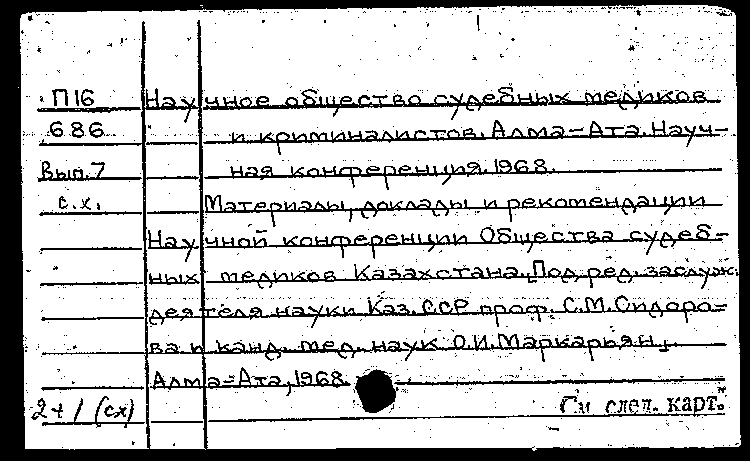 П16 Научное общество судебных медиков
686 и криминалистов. Алма-Ата. Науч-
Вып.7 ная конференция. 1968.
с.х. Материалы, доклады и рекомендации
Научной конференции Общества судеб-
ных медиков Казахстана. Под ред. заслуж.
деятеля науки Каз. ССР проф. С.М. Сидоро-
ва и канд. мед. наук О.И. Маркарьян.
Алма-Ата, 1968.
2+1 (сх) См след. карт.